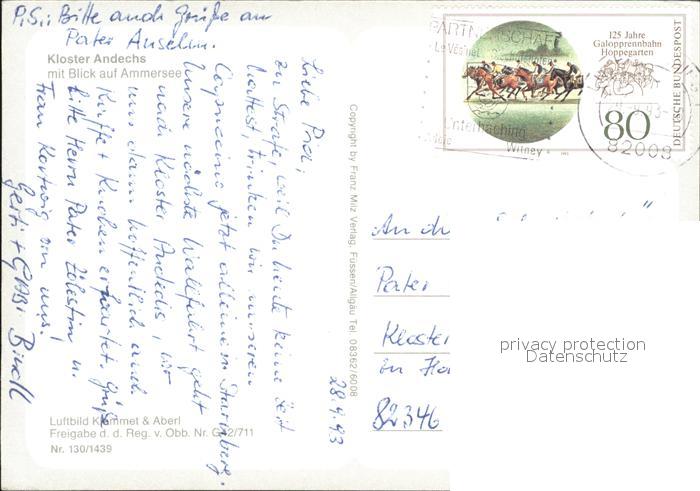 P.S.: Bitte auch Grüße an
Pater Anselm.
Kloster Andechs
mit Blick auf Ammersee
Liebe Pia,
zur Strafe, weil Du heute keine Zeit
hattest, trinken wir unseren
Capuccino jetzt alleine in Starnberg.
Unsere nächste Wallfahrt geht
nach Kloster Andechs, wo
uns dann hoffentlich auch
Kaffee + Kuchen erwartet. Grüße
bitte Herrn Pater Zölestin u.
Frau Hartwig von uns!
Gerti + GABI
Luftbild Klammet & Aberl
Freigabe d. d. Reg. v. Obb. Nr. G42/711
Nr. 130/1439
Copyright by Franz Milz Verlag, Füssen/Allgäu Tel. 08362/6008
28.9.93
PARTNERSCHAFT
Le Vésinet
Unterhaching
Witney
125 Jahre
Galopprennbahn
Hoppegarten
80
DEUTSCHE BUNDESPOST
1993
82008
An d
Pater
Kloster
in Ha
82346
privacy protection
Datenschutz